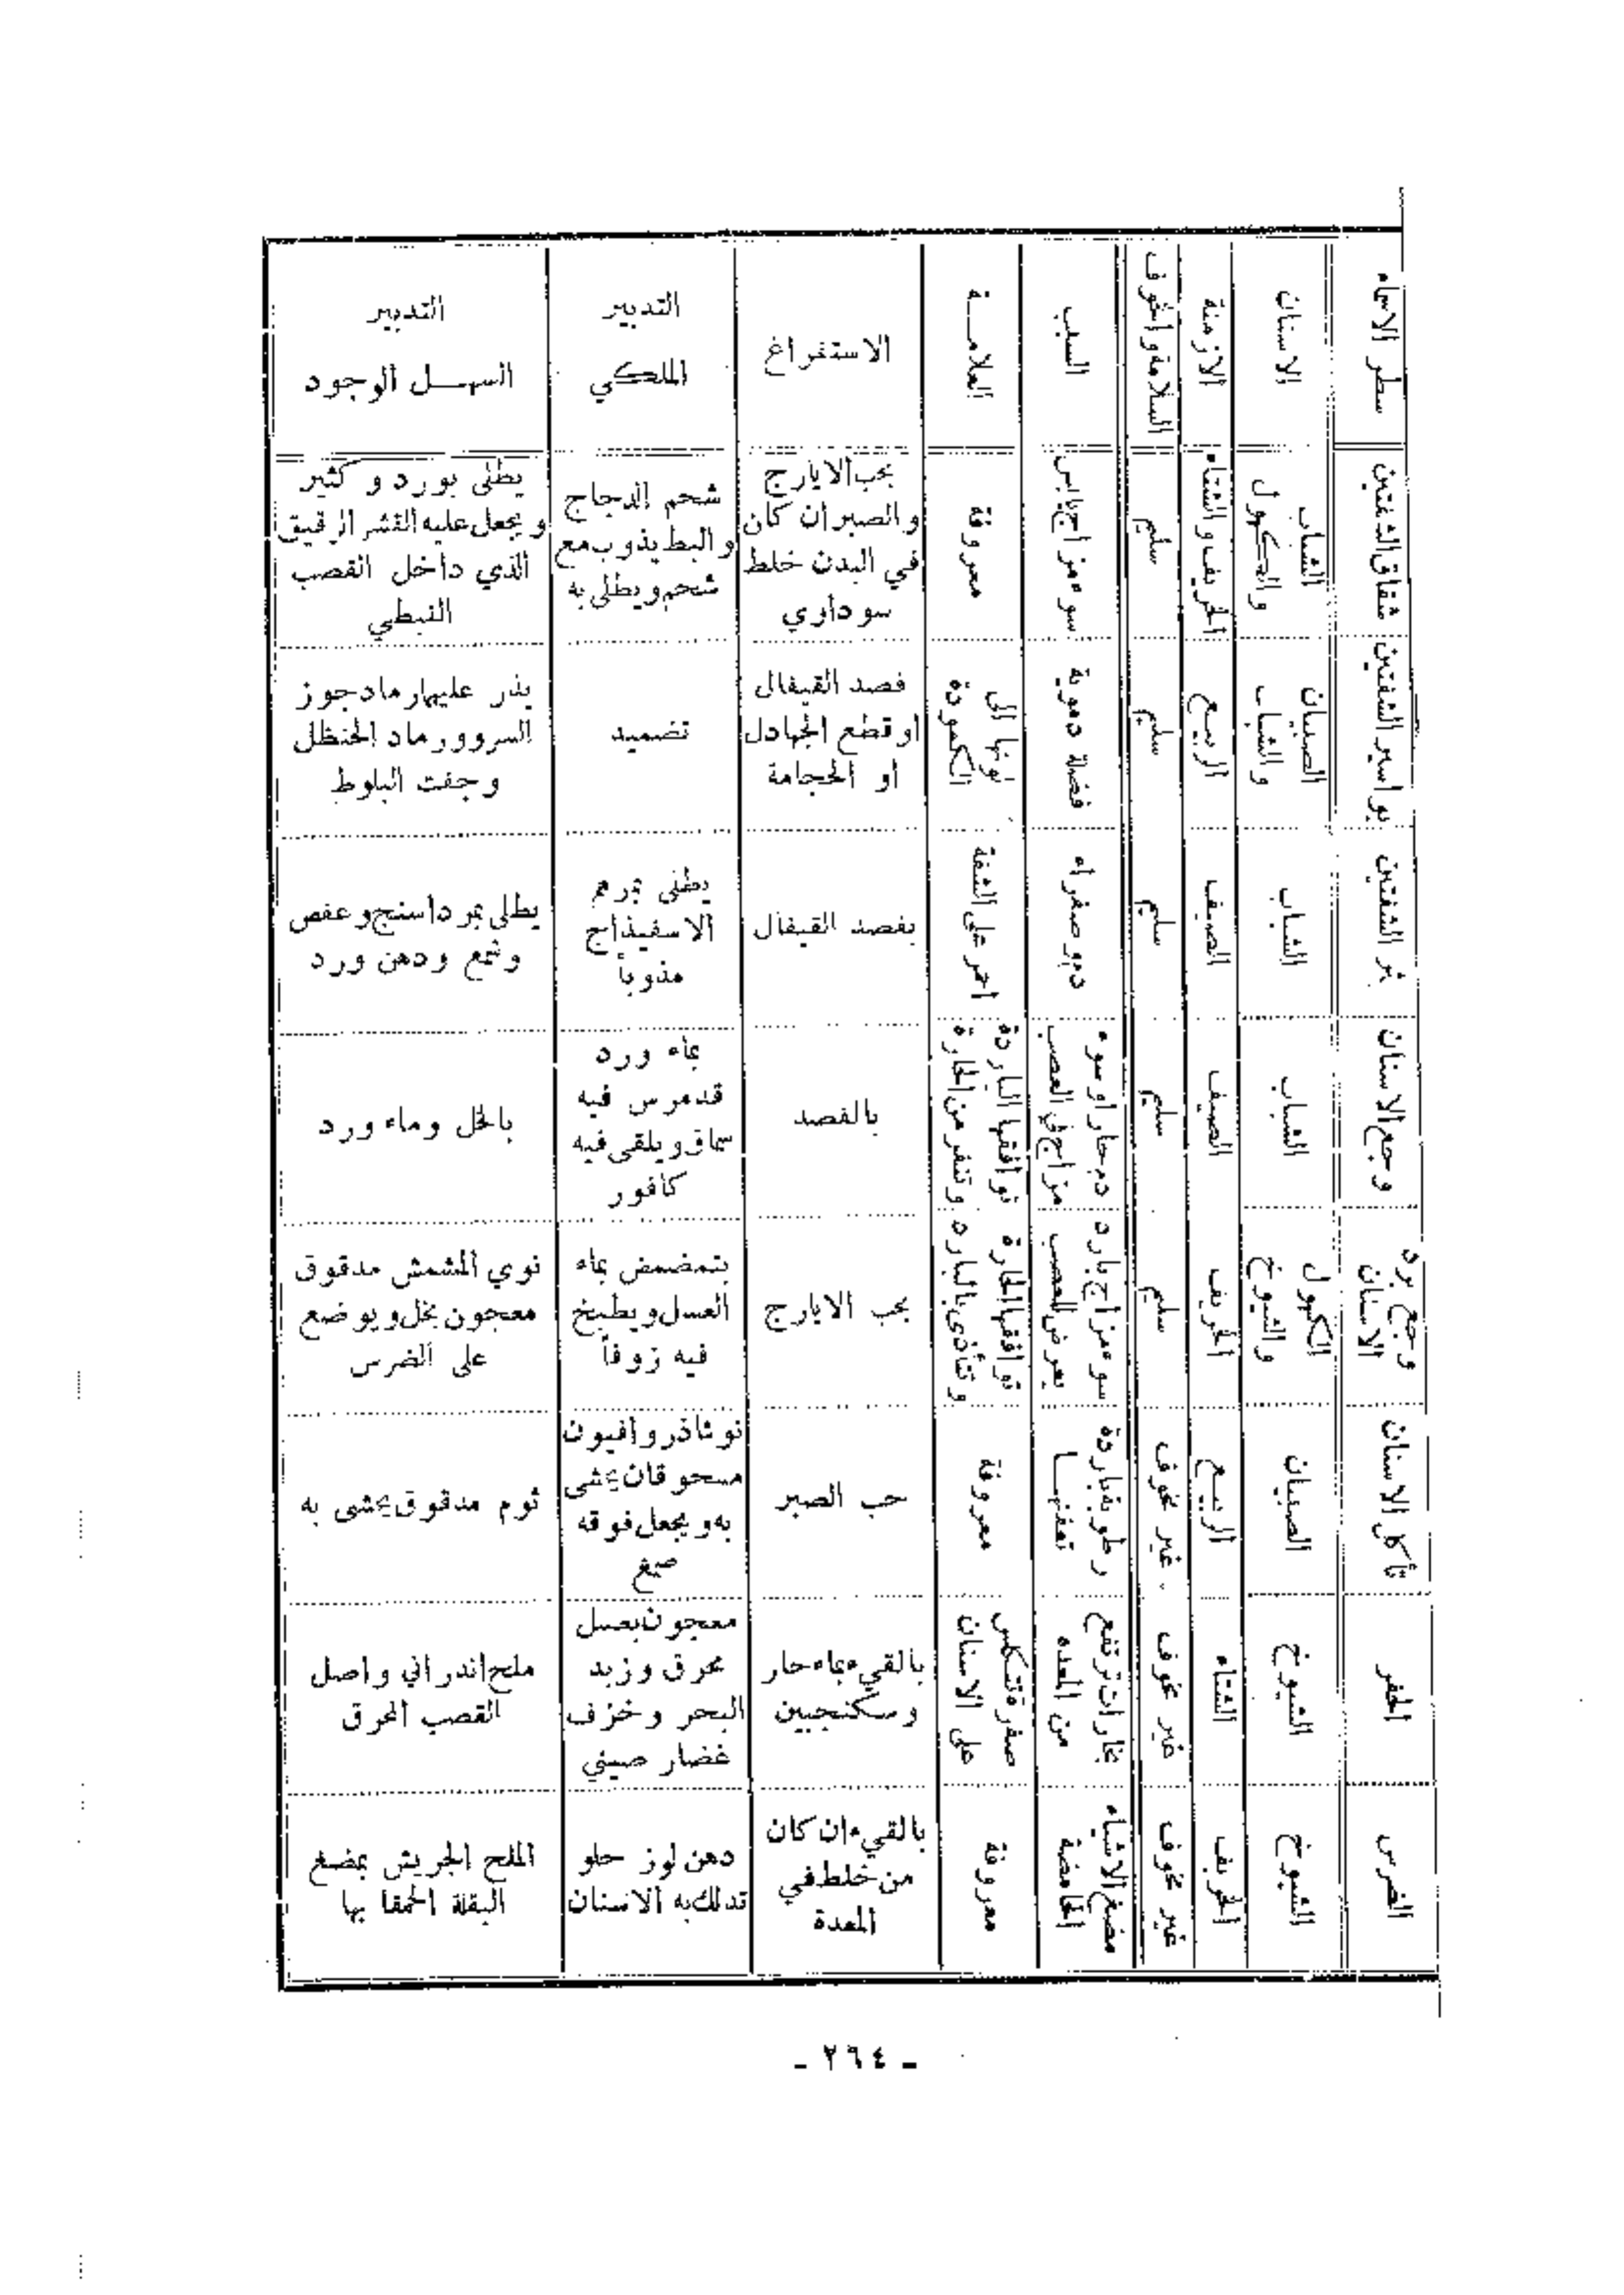 سطر الاسماء
الاسنان
الازمنة
السلامة والخوف
السبب
العلامـــة
الاستفراغ
التدبير
الملكي
التدبير
السهـــل الوجود
شقاق الشفتين
الشباب
والكهول
الخريف والشتاء
سليم
سوء مزاج يابس
معروفة
بحب الايارج
والصبر ان كان
في البدن خلط
سوداري
شحم الدجاج
والبط يذوب مع
شحم ويطلى به
يطلى بورد و كثير
ويجعل عليه القشر الرقيق
الذي داخل القصب
النبطي
بواسير الشفتين
الصبيان
والشباب
الربيع
سليم
فضلة دموية
لونها الى
الكمودة
فصد القيفال
او قطع الجهادل
أو الحجامة
تضميد
يذر عليها رماد جوز
السرو ورماد الحنظل
وجفت البلوط
بثر الشفتين
الشباب
الصيف
سليم
دم وصفراء
احمر على الشفة
بفصد القيفال
يطلى بمرهم
الاسفيذاج
مذوباً
يطلى بمرداسنج وعفص
وشمع ودهن ورد
وجع الاسنان
الشباب
الصيف
سليم
دم حار او سوء
مزاج في العصب
توافقها الباردة
وتنفر من الحارة
بالفصد
بماء ورد
قد مرس فيه
سماق ويلقى فيه
كافور
بالخل وماء ورد
وجع برد
الاسنان
الكهول
والشيوخ
الخريف
سليم
سوء مزاج بارد
يعرض للعصب
توافقها الحارة
وتتأذى بالبارد
بحب الايارج
يتمضمض بماء
العسل ويطبخ
فيه زوفاً
نوي المشمش مدقوق
معجون بخل ويوضع
على الضرس
تأكل الاسنان
الصبيان
الربيع
غير مخوف
رطوبة باردة
تعفنهـــا
معروفة
حب الصبر
نوشاذر وافيون
مسحوقان يحشى
به ويجعل فوقه
صمغ
ثوم مدقوق يحشى به
الحفر
الشيوخ
الشتاء
غير مخوف
بخارات ترتفع
من المعده
صفرة تتكلس
على الاسنان
بالقيء بماء حار
وسكنجبين
معجون بعسل
محرق وزبد
البحر وخزف
غضار صيني
ملح اندراني واصل
القصب المحرق
الضرس
الشيوخ
الخريف
غير مخوف
مضغ الاشياء
الحامضة
معروفة
بالقيء ان كان
من خلط في
المعدة
دهن لوز حلو
تدلك به الاسنان
الملح الجريش بمضغ
البقلة الحمقا بها
- ٢٦٤ -